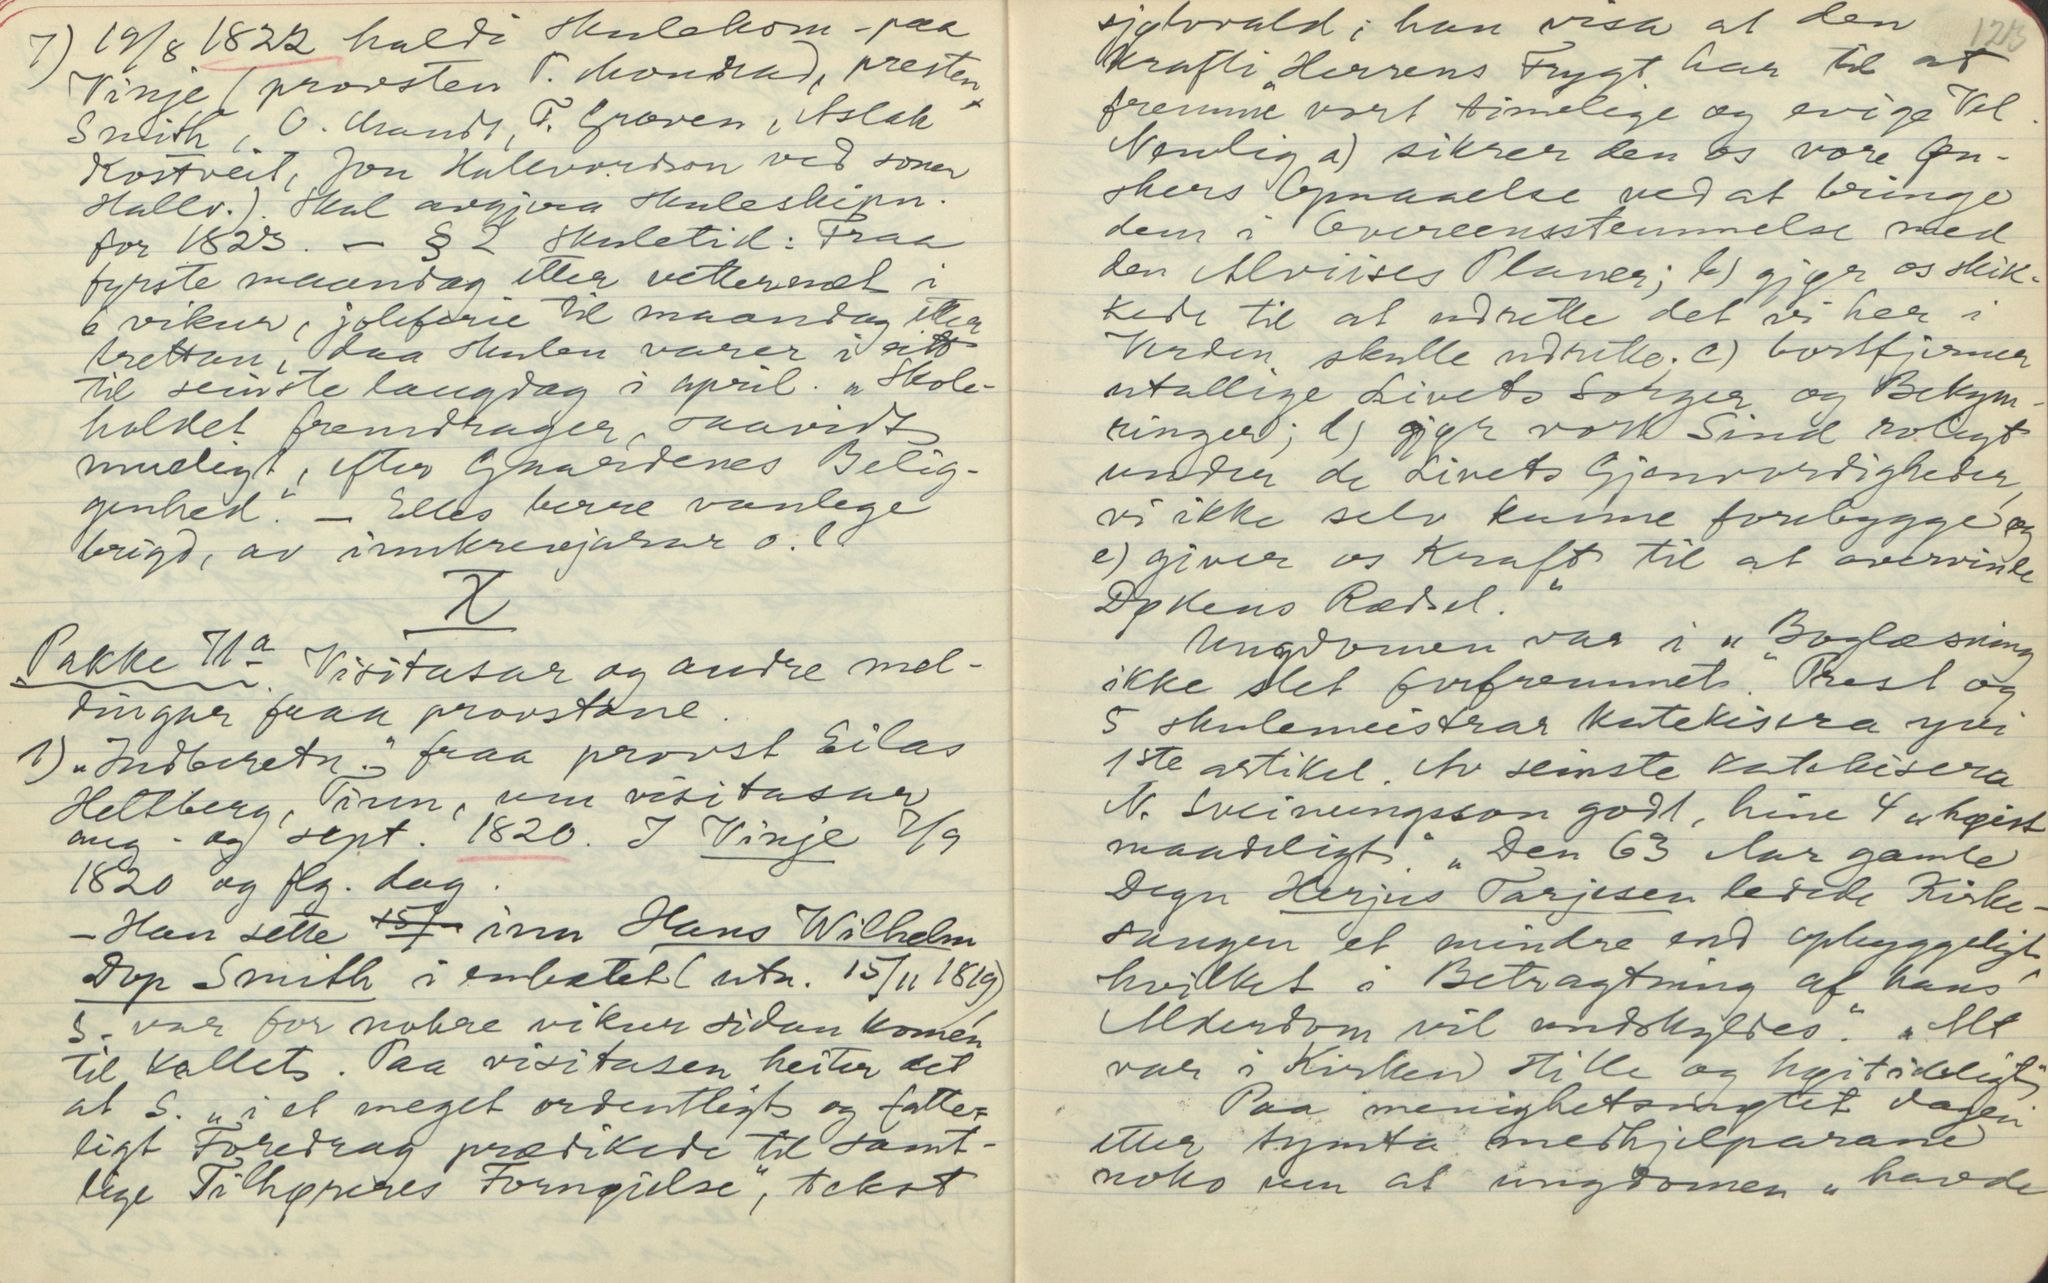 7) 19/8 1822 haldi skulekom. paa
Vinje (provsten T. Mondrad, presten
Smith, O. Mandt, T. Groven, Aslak
Kostveit, Jon Hallvordson ved sonen
Hallv.). Skal avgjera skuleskipn.
for 1823. — § 2 skuletid: Fraa
fyrste maandag etter vetternæt i
6 vikur, joleferie til maandag etter
trettan, daa skulen varer i eitt
til seinste laugdag i april. „Skole-
holdet fremdrager, saavidt
mueligt, efter Gaardenes Belig-
genhed." — Elles berre vanlege
brigd, av innkrevjarar o. l.
X
Pakke 71a. Visitasar og andre mel-
dingar fraa provstane.
1) „Indberetn." fraa provst Eilas
Heltberg, Tinn, um visitasar
aug.- og sept. 1820. I Vinje 7/9
1820 og flg. dag.
– Han sette inn Hans Wilhelm
Dop Smith i embætet (utn. 15/11 1819)
S. var for nokre vikur sidan komen
til kallet. Paa visitasen heiter det
at S. „i et meget ordentligt og fatte-
ligt Foredrag prædikede til samt-
lige Tilhøreres Fornøielse", tekst
128
sjølvvald; han visa at den
Kraft „Herrens Frygt har til at
fremme vort timelige og evige Vel.
Nemlig a) sikrer den os vore Øn-
skers Opnaaelse ved at bringe
dem i Overeensstemmelse med
den Alviises Planer; b) gjør os skik-
kede til at udrette det vi her i
Verden skulle udrette; c) bortfjerner
utallige Livets Sorger og Bekym-
ringer; d) gjør vort Sind roligt
under de Livets Gjenvordigheder,
vi ikke selv kunne forebygge og
e) giver os Kraft til at overvinde
Døkens Rædsel."
Ungdomen var i „Boglæsning
ikke slet forfremmet." Prest og
5 skulemeistrar katekisera yvi
1ste artikel. Av seinste katekisera
N. Sveinungsson godt, hine 4 „høist
maadeligt." „Den 63 Aar gamle
Degn Herjus Tarjesen ledede Kirke-
sangen et mindre end opbyggeligt,
hvilket i Betragtning af hans
Alderdom vil undskyldes". „Alt
var i Kirken stille og høitideligt"
Paa menighetsmøtet dagen
etter tymta medhjelparane
noko um at ungdomen „havde